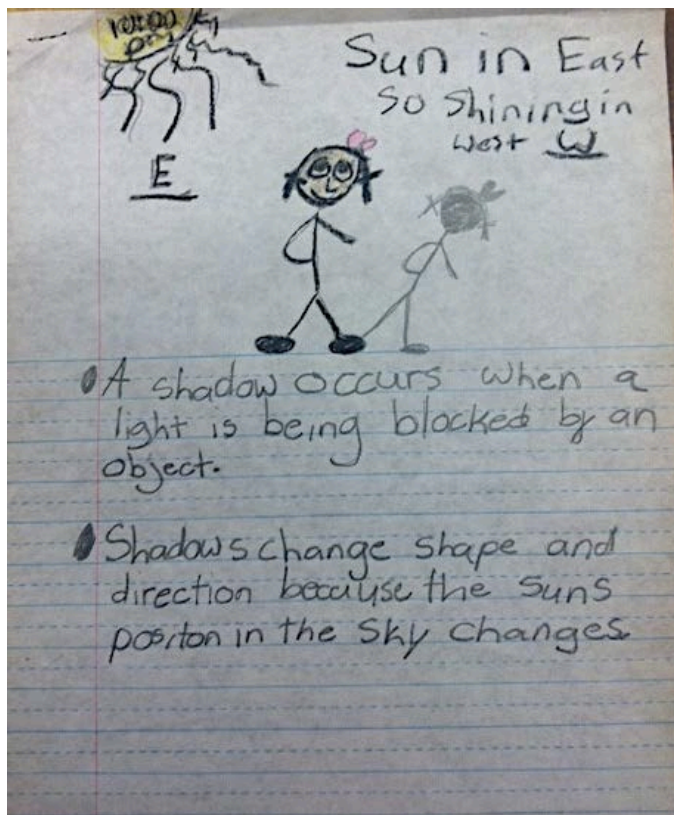 10:00
Sun in East
So Shining in
West W
E
A shadow occurs when a
light is being blocked by an
object.
Shadows change shape and
direction because the Suns
positon in the Sky changes